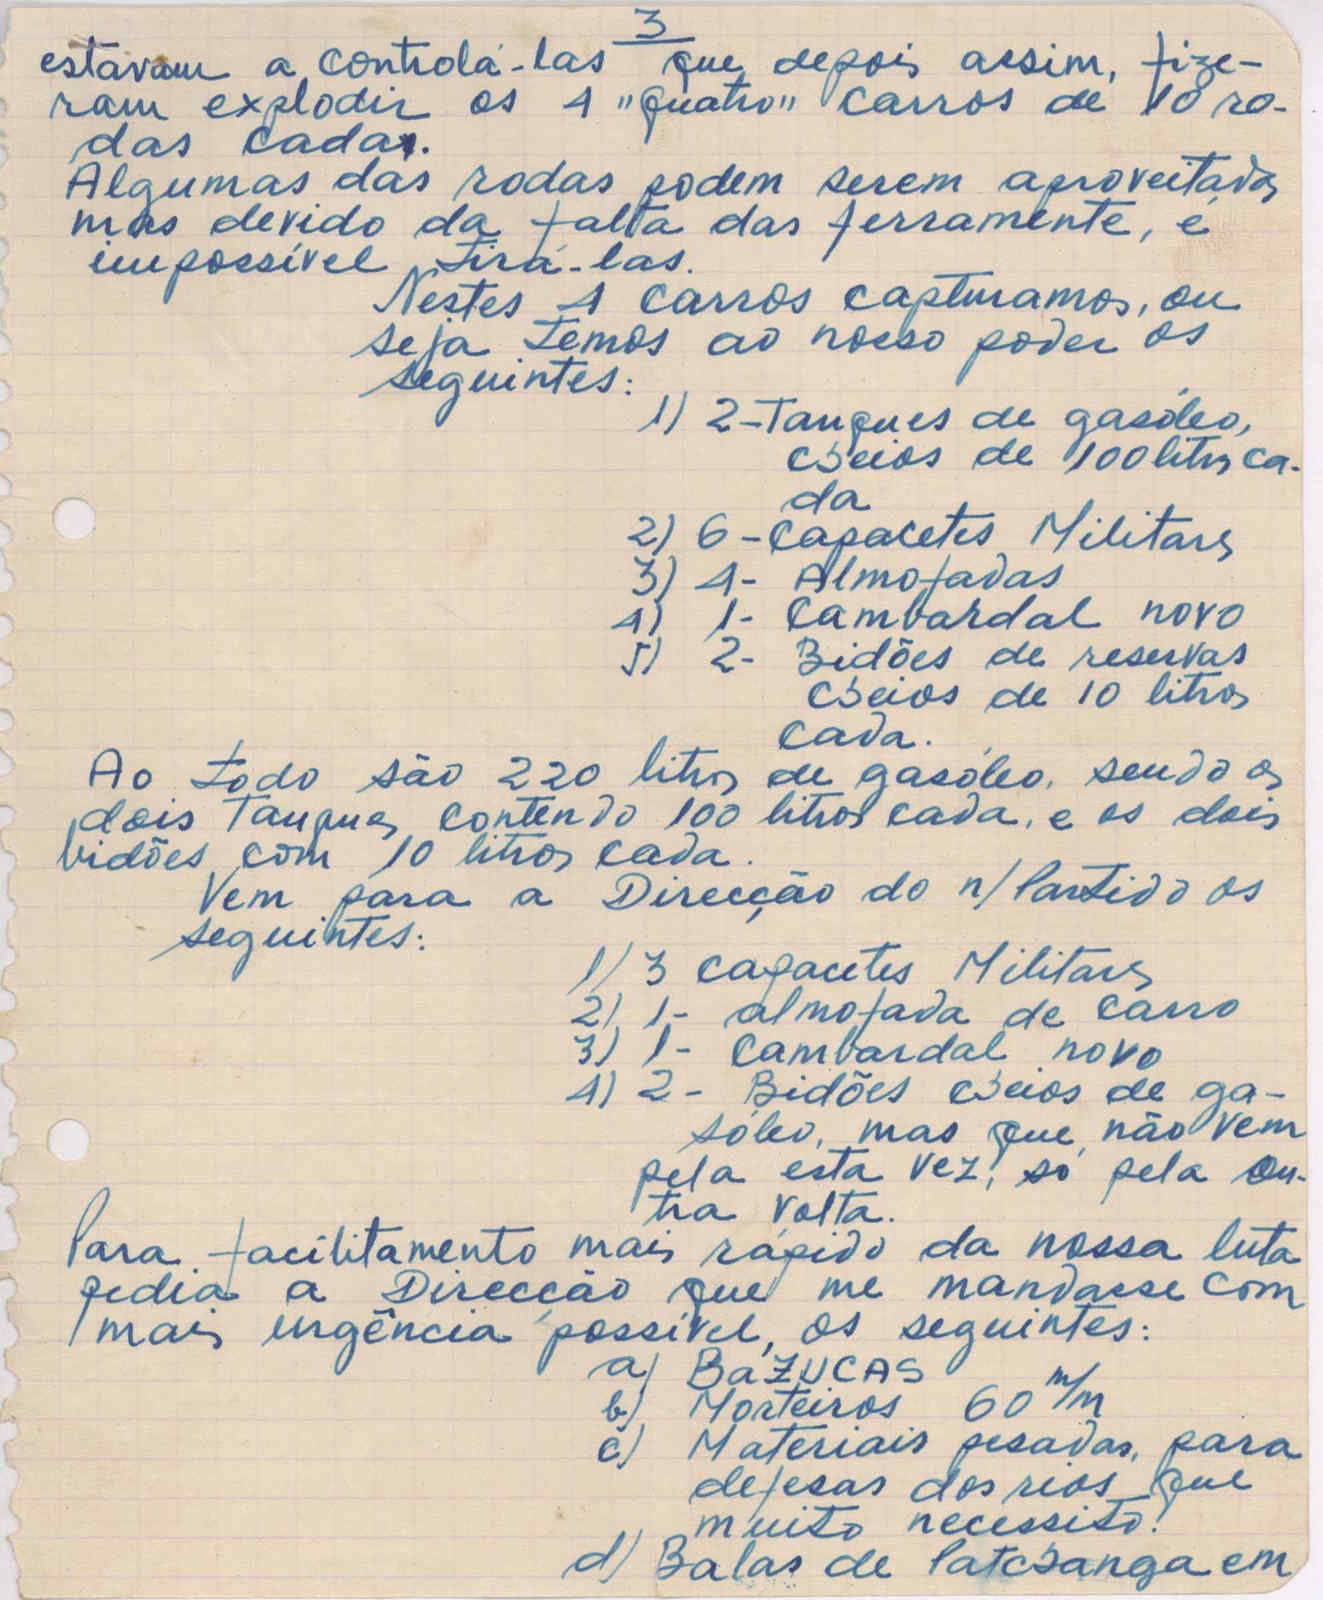 3
estavam a controlá-las que depois assim, fize-
ram explodir os 4 "quatro" carros de 10 ro-
das cada.
Algumas das rodas podem serem aproveitadas
mas devido da falta das ferramente, é
impossível tirá-las.
Nestes 4 carros capturamos, ou
seja temos ao nosso poder os
seguintes:
1) 2-Tanques de gasóleo,
cheios de 100 litros ca-
da
2) 6-Capacetes Militares
3) 4- Almofadas
4) 1- Cambardal novo
5) 2- Bidões de reservas
cheios de 10 litros
cada.
Ao todo são 220 litros de gasóleo, sendo os
dois Tanques contendo 100 litros cada, e os dois
bidões com 10 litros cada.
Vem para a Direcção do n/Partido os
seguintes:
1) 3 capacetes Militares
2) 1- almofada de carro
3) 1- Cambardal novo
4) 2- Bidões cheios de ga-
sóleo, mas que não vem
pela esta vez, só pela ou-
tra volta.
Para facilitamento mais rápido da nossa luta
pedia a Direcção que me mandasse com
mais urgência possível, os seguintes:
a) BaZUCAS
b) Morteiros 60 m/m
c) Materiais pesadas, para
defesas dos rios que
muito necessito!
d) Balas de Patchanga em